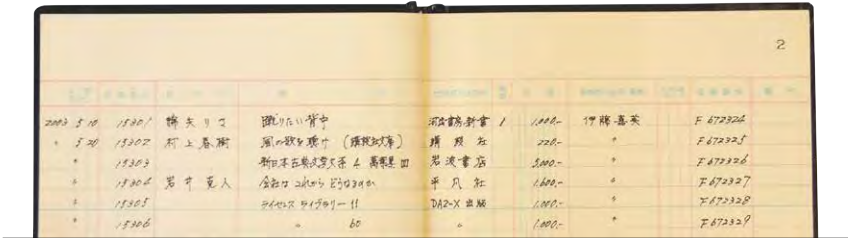 2
2003 5 10 15301 綿矢りさ 蹴りたい背中 河出書房新書 1 1,000.- 伊藤喜英 F 672324
〃 5 20 15302 村上春樹 風の歌を聴け (講談社文庫) 講談社 220.- 〃 F 672325
〃 15303 新日本古典文学大系 4 萬葉集 四 岩波書店 5,000.- 〃 F 672326
〃 15304 岩井克人 会社はこれからどうなるのか 平凡社 1,600.- 〃 F 672327
〃 15305 ライセンス ライブラリー 11 DAZ-X 出版 1,000.- 〃 F 672328
〃 15306 〃 60 〃 1,000.- 〃 F 672329